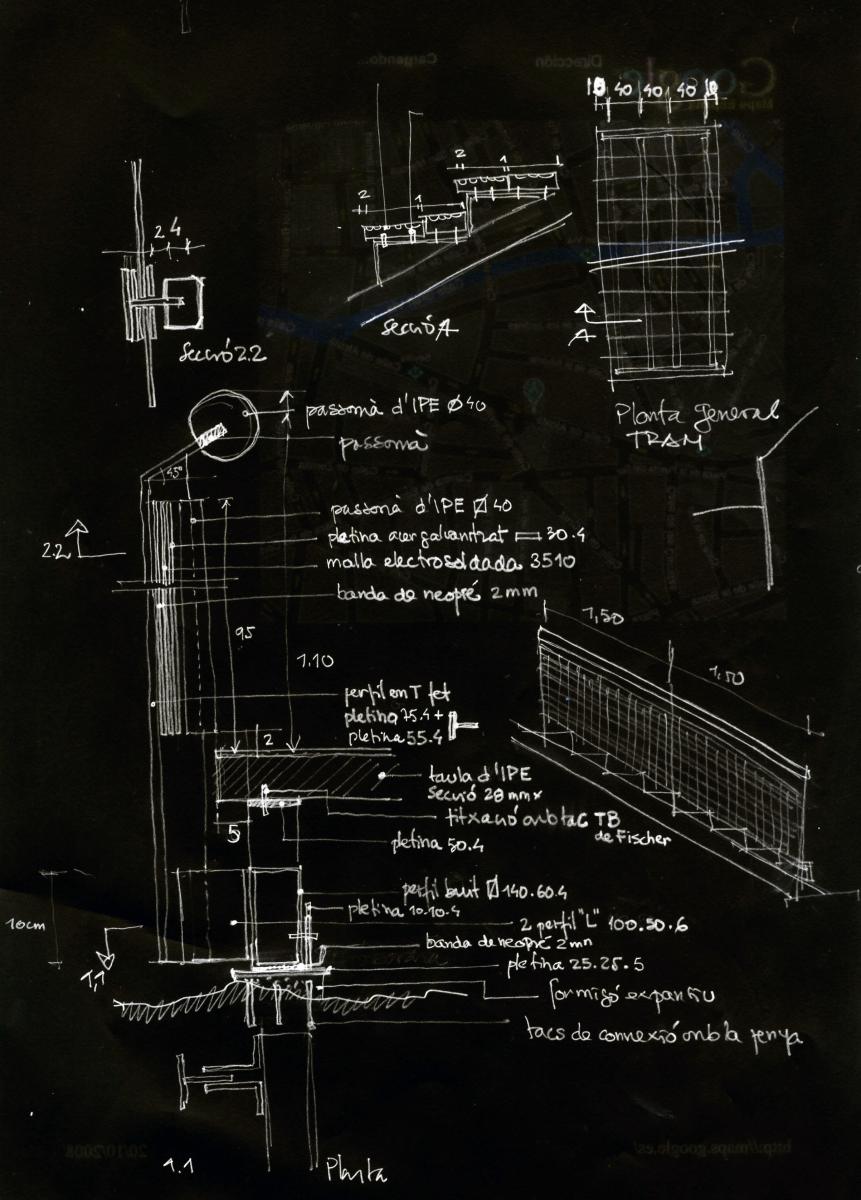 10 40 40 40 10
2 1
2 1
2 4
secció A
secció 2.2
A
Planta general
TRAM
passamà d'IPE Ø 40
passamà
45°
passamà d'IPE 40
pletina acer galvanitzat 30.4
malla electrosoldada 3510
banda de neopré 2mm
2.2
95
1.10
1,50
1,50
perfil en T fet
pletina 75.4 +
pletina 55.4
2
taula d'IPE
secció 28 mm x
fitxació amb tac TB
de Fischer
5
pletina 50.4
perfil buit 140.60.4
pletina 10.10.4
2 perfil "L" 100.50.6
10cm
banda de neopré 2mm
pletina 25.25.5
1,1
formigó expantiu
tacs de connexió amb la penya
1.1
Planta
Google
Dirección
Cargando...
20/10/2008
http://maps.google.es/